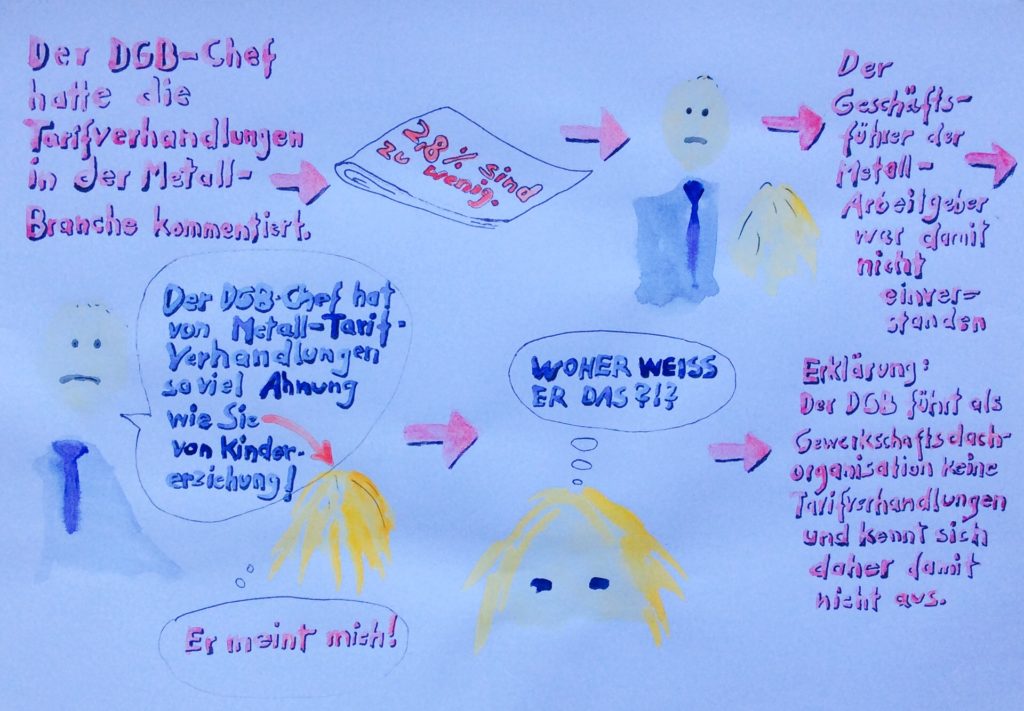 Der DGB-Chef
hatte die
Tarifverhandlungen
in der Metall-
Branche kommentiert.
2,8% sind
zu wenig.
Der
Geschäfts-
führer der
Metall-
Arbeitgeber
war damit
nicht
einver-
standen
Der DGB-Chef hat
von Metall-Tarif-
Verhandlungen
soviel Ahnung
wie Sie
von Kinder-
erziehung!
Er meint mich!
WOHER WEISS
ER DAS?!?
Erklärung:
Der DGB führt als
Gewerkschaftsdach-
organisation keine
Tarifverhandlungen
und kennt sich
daher damit
nicht aus.